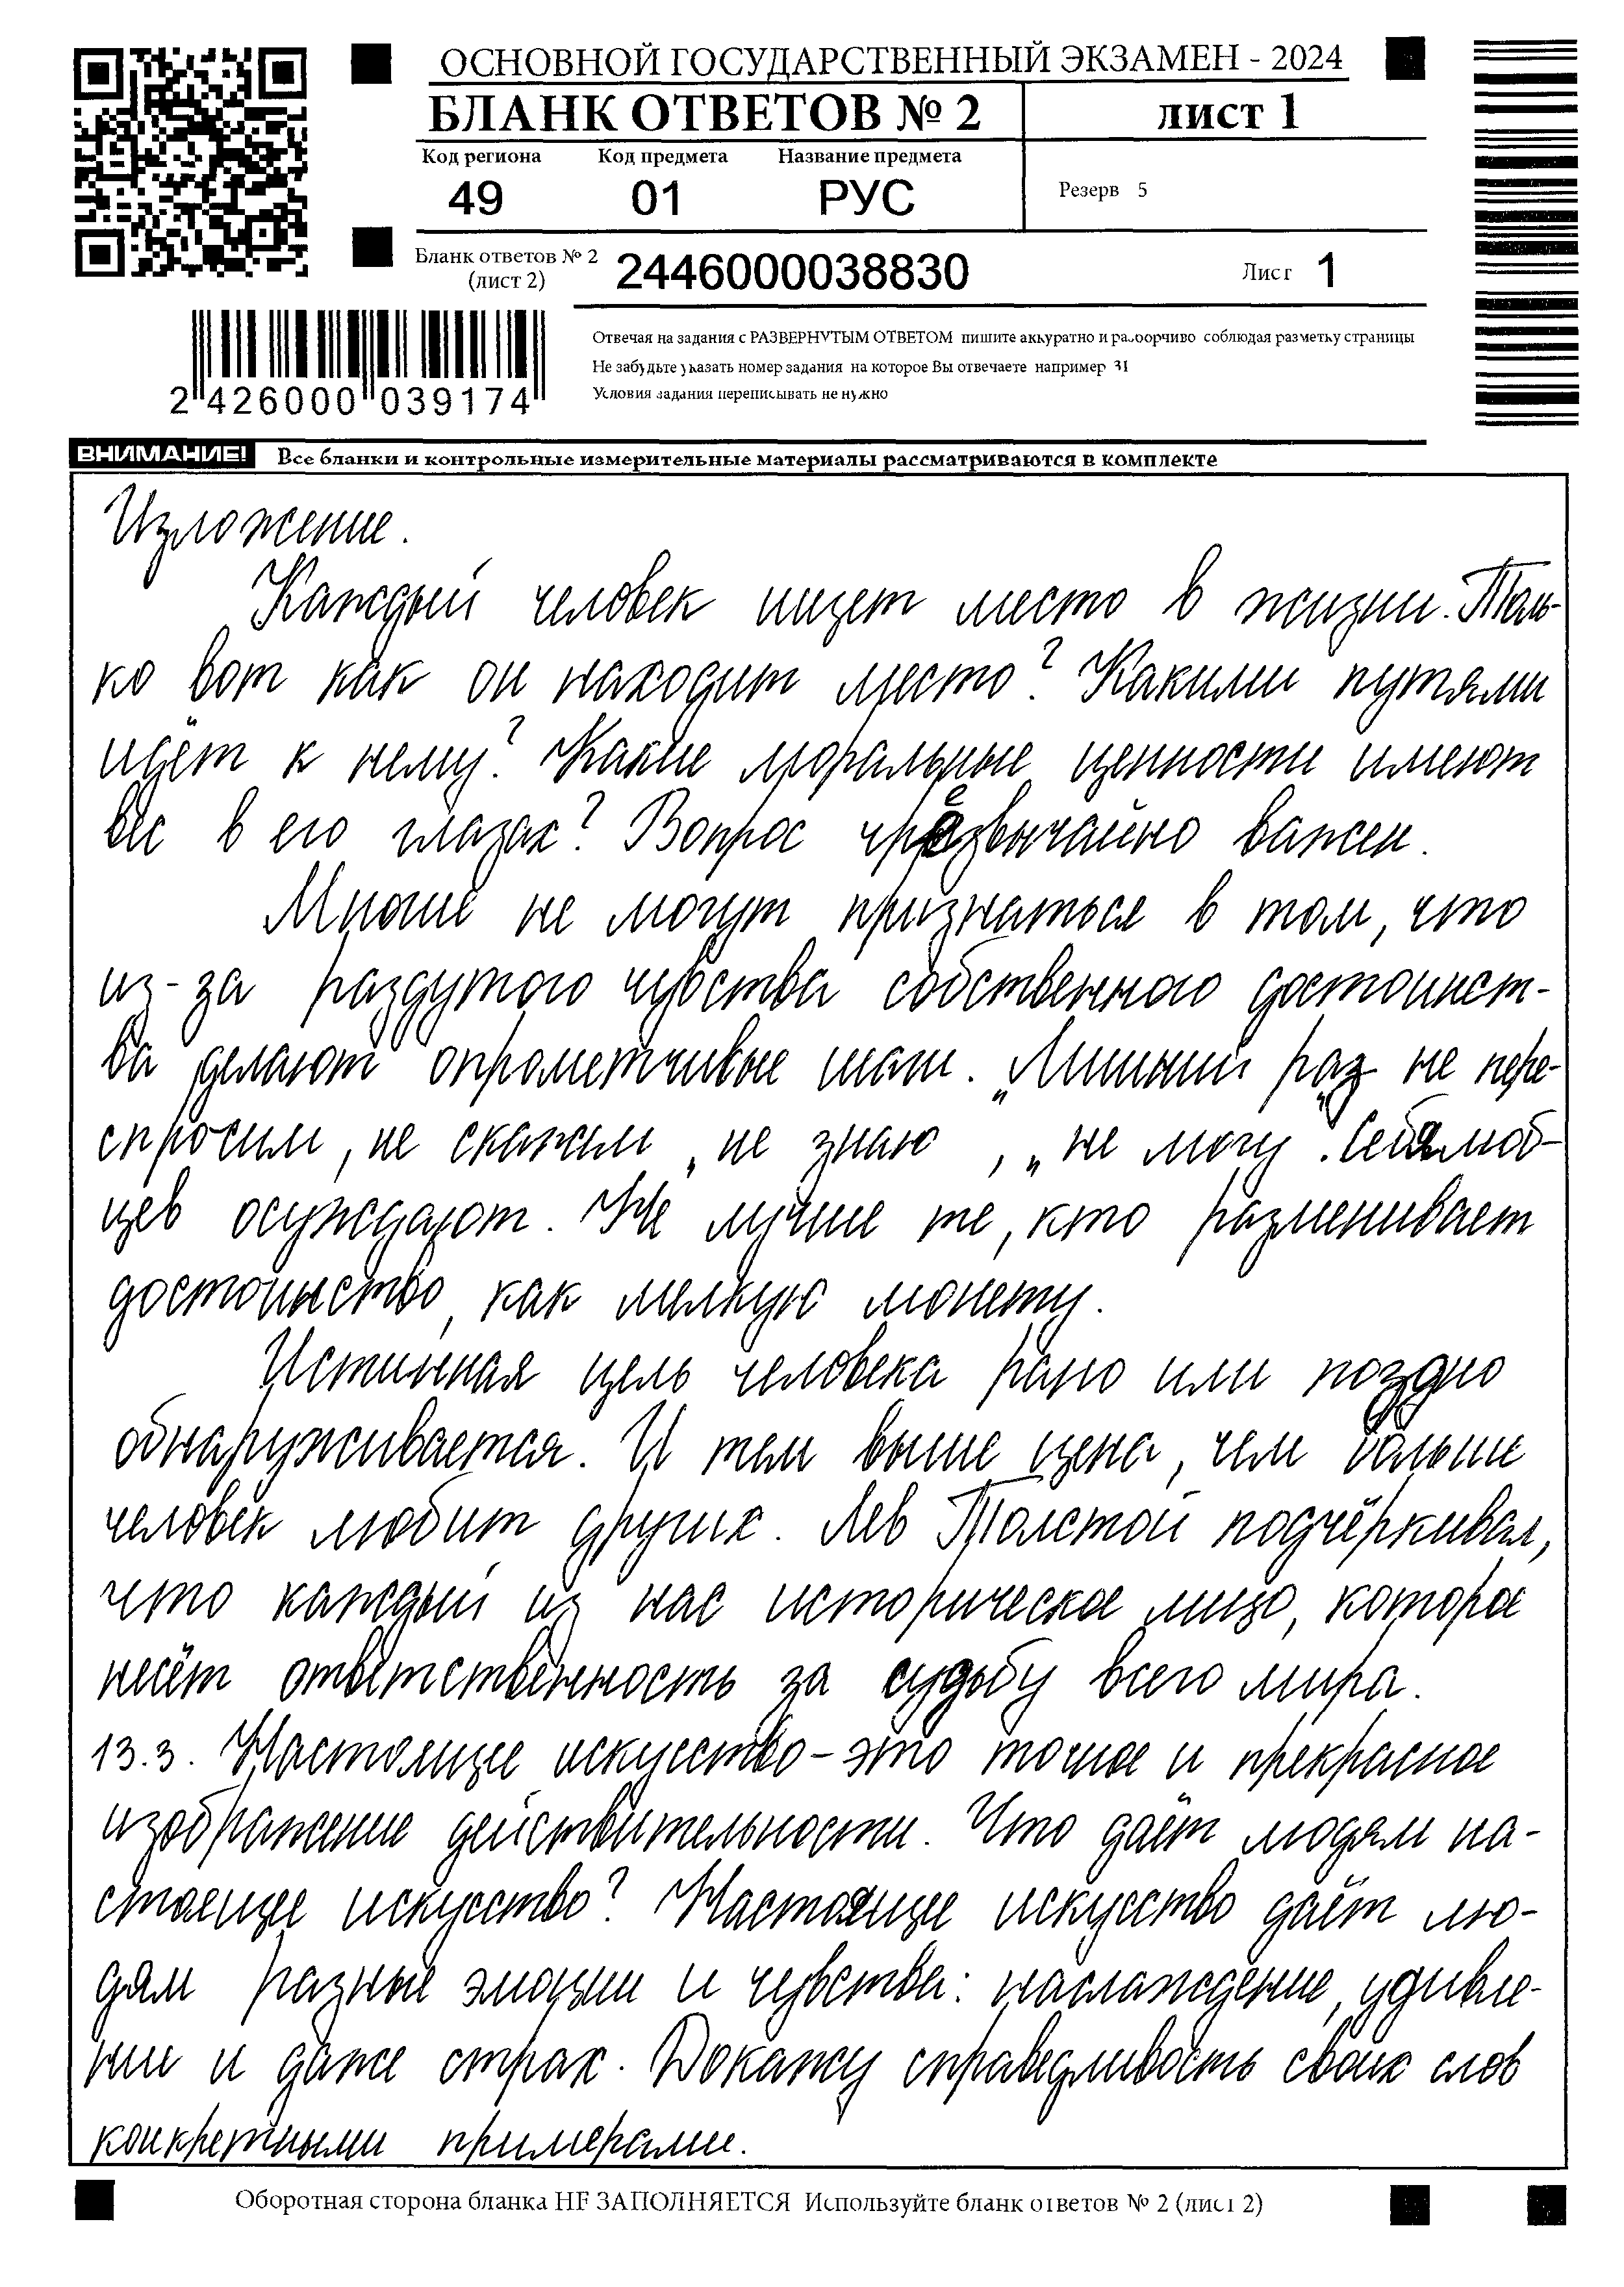 ОСНОВНОЙ ГОСУДАРСТВЕННЫЙ ЭКЗАМЕН - 2024
БЛАНК ОТВЕТОВ № 2
лист 1
Код региона Код предмета Название предмета
49 01 РУС
Резерв 5
Бланк ответов № 2
(лист 2)
2446000038830
Лист 1
Отвечая на задания с РАЗВЕРНУТЫМ ОТВЕТОМ пишите аккуратно и разборчиво соблюдая разметку страницы
Не забудьте указать номер задания на которое Вы отвечаете например 31
Условия задания переписывать не нужно
2 426000 039174
ВНИМАНИЕ! Все бланки и контрольные измерительные материалы рассматриваются в комплекте
Изложение.
Каждый человек ищет место в жизни. Толь-
ко вот как он находит место? Какими путями
идёт к нему? Какие моральные ценности имеют
вес в его глазах? Вопрос чрезвычайно важен.
Многие не могут признаться в том, что
из-за раздутого чувства собственного достоинст-
ва делают опрометчивые шаги. Лишний раз не пере-
спросим, не скажем „не знаю", „не могу". Себялюб-
цев осуждают. Не лучше те, кто разменивает
достоинство, как мелкую монету.
Истинная цель человека рано или поздно
обнаруживается. И тем выше цена, чем больше
человек любит других. Лев Толстой подчёркивал,
что каждый из нас историческое лицо, которое
несёт ответственность за судьбу всего мира.
13.3. Настоящее искусство – это точное и прекрасное
изображение действительности. Что даёт людям на-
стоящее искусство? Настоящее искусство даёт лю-
дям разные эмоции и чувства: наслаждение, удивле-
ние и даже страх. Докажу справедливость своих слов
конкретными примерами.
Оборотная сторона бланка НЕ ЗАПОЛНЯЕТСЯ Используйте бланк ответов № 2 (лист 2)